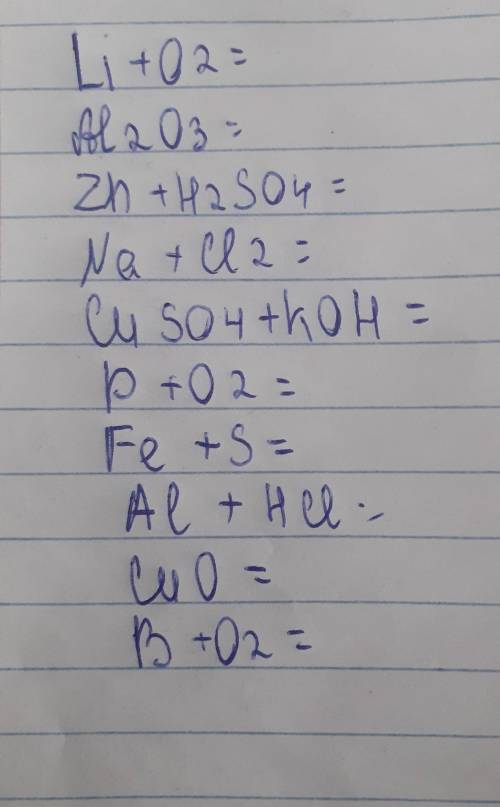 Li + O2 =
Al2O3 =
Zn + H2SO4 =
Na + Cl2 =
CuSO4 + KOH =
P + O2 =
Fe + S =
Al + HCl =
CuO =
B + O2 =